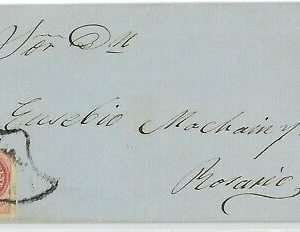 Sor Dn
Eusebio Machain y
Rosario